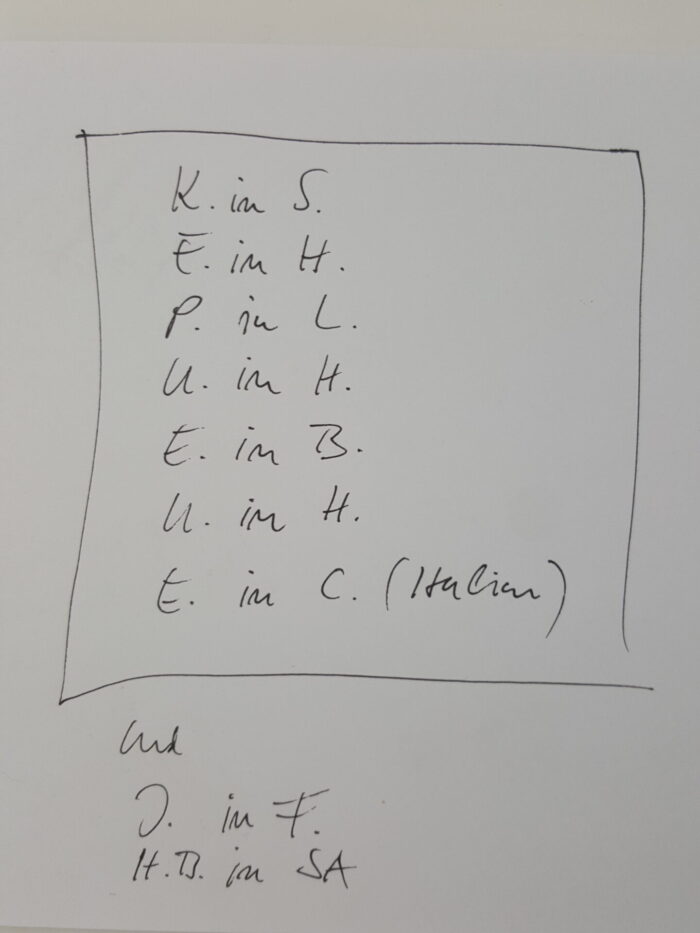 K. in S.
E. in H.
P. in L.
U. in H.
E. in B.
U. in H.
E. in C. (Italien)
und
J. in F.
H.B. in SA